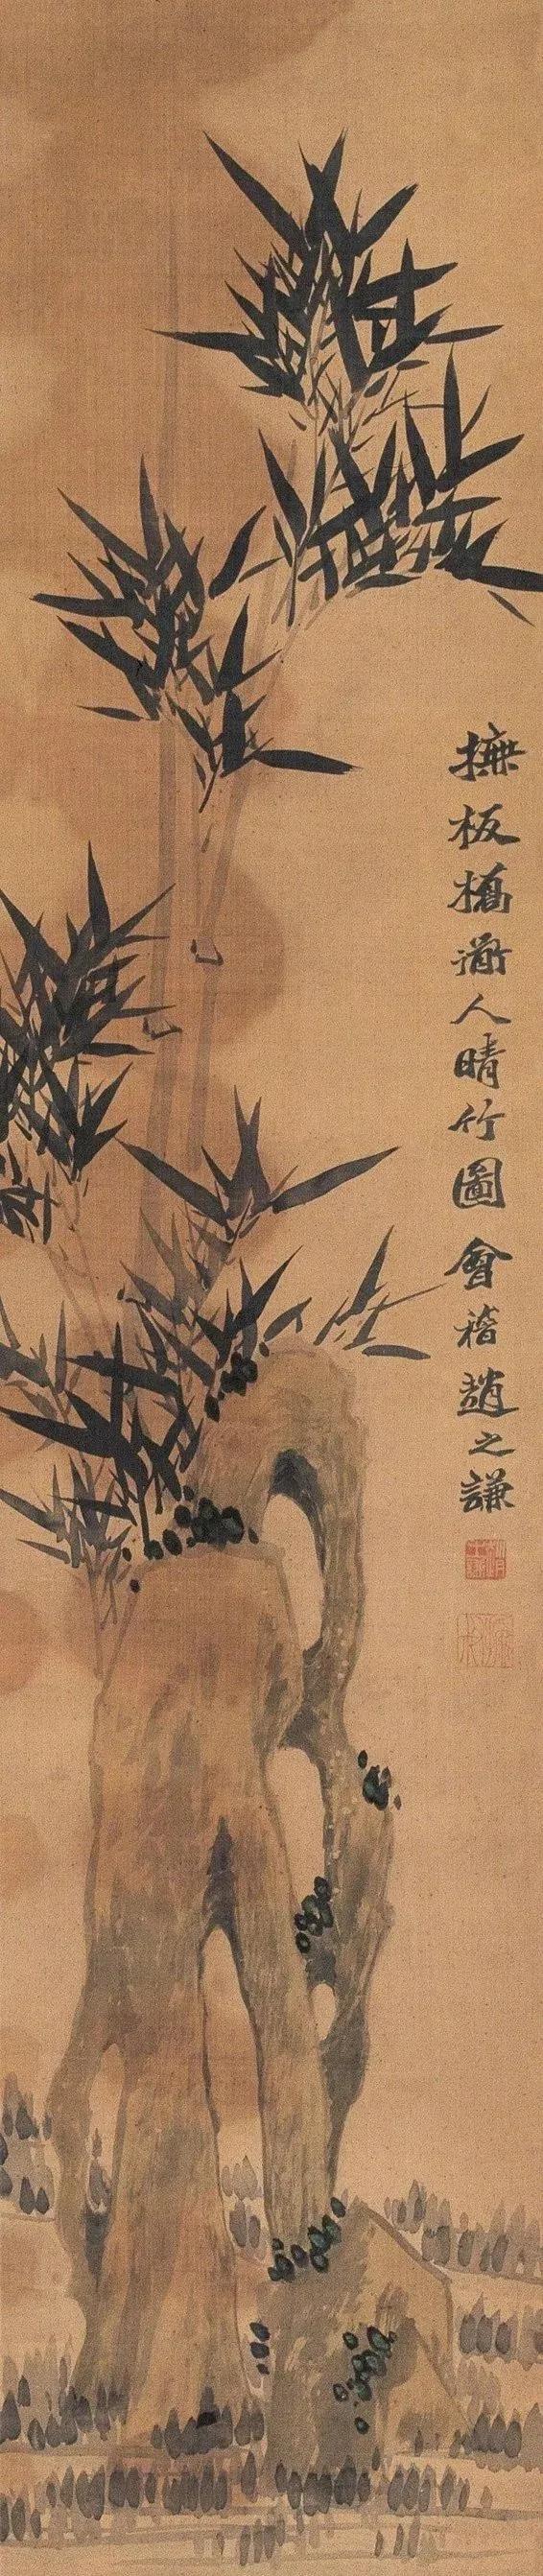 橅板橋道人晴竹圖會稽趙之謙